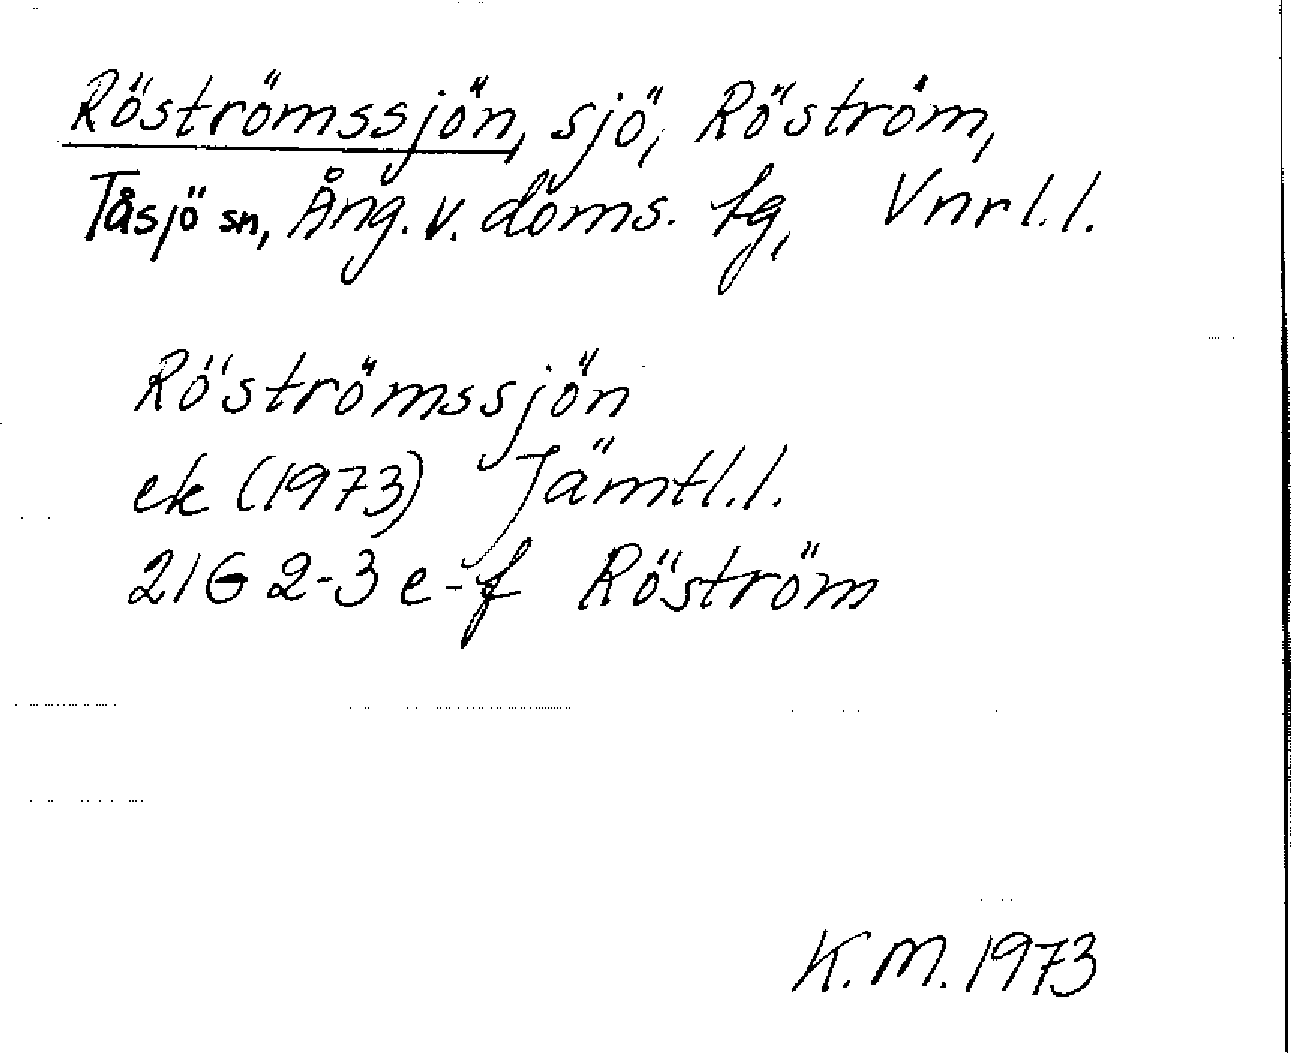 Röströmssjön, sjö, Röström,
Tåsjö sn, Ång. v. doms. tg, Vnrl.l.
Röströmssjön
ek (1973) Jämtl.l.
21G 2-3 e-f Röström
K.M. 1973